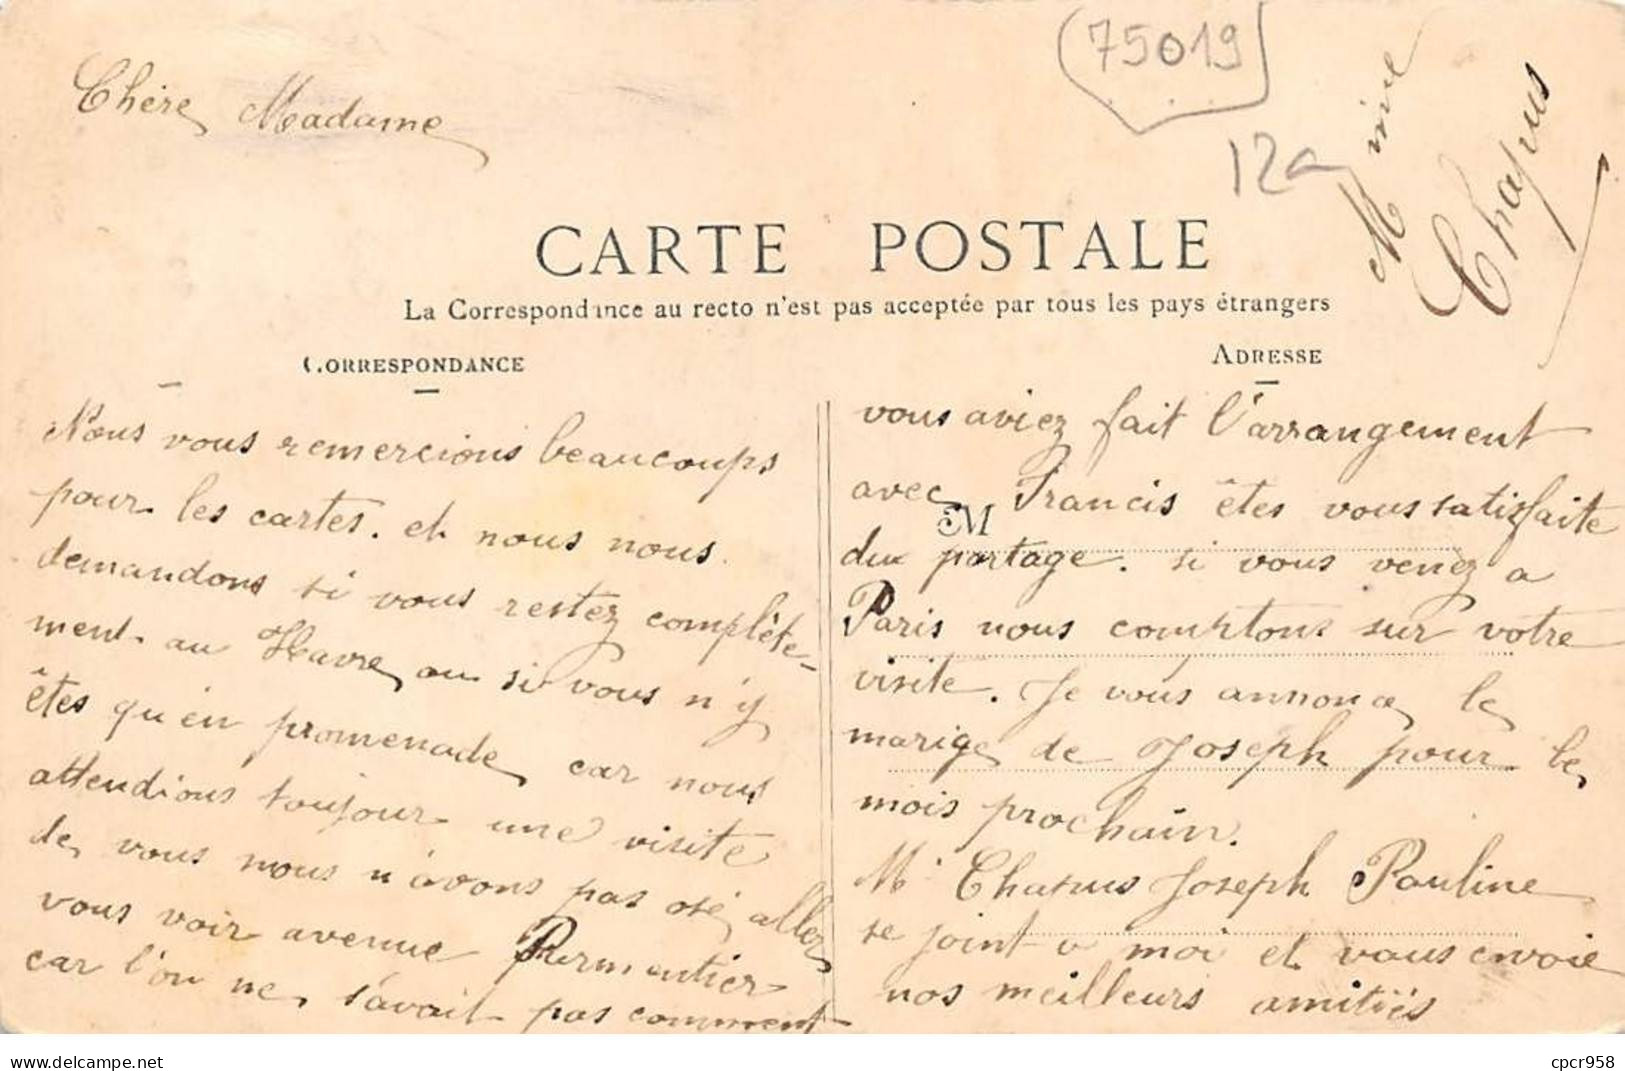 (75019)
12a
Chère Madame
Mme
Chapus
CARTE POSTALE
La Correspondance au recto n'est pas acceptée par tous les pays étrangers
CORRESPONDANCE
ADRESSE
Nous vous remercions beaucoups
pour les cartes. et nous nous
demandons si vous restez complète-
ment au Havre ou si vous n'y
êtes qu'en promenade car nous
attendions toujour une visite
de vous nous n'avons pas osé aller
vous voir avenue Parmentier
car l'on ne savait pas comment
vous aviez fait l'arrangement
avec Francis êtes vous satisfaite
M
du partage. si vous venez a
Paris nous comptons sur votre
visite. Je vous annonce le
marige de Joseph pour le
mois prochain.
Mr Chapus Joseph Pauline
se joint a moi et vous envoie
nos meilleurs amitiés
cpcr958